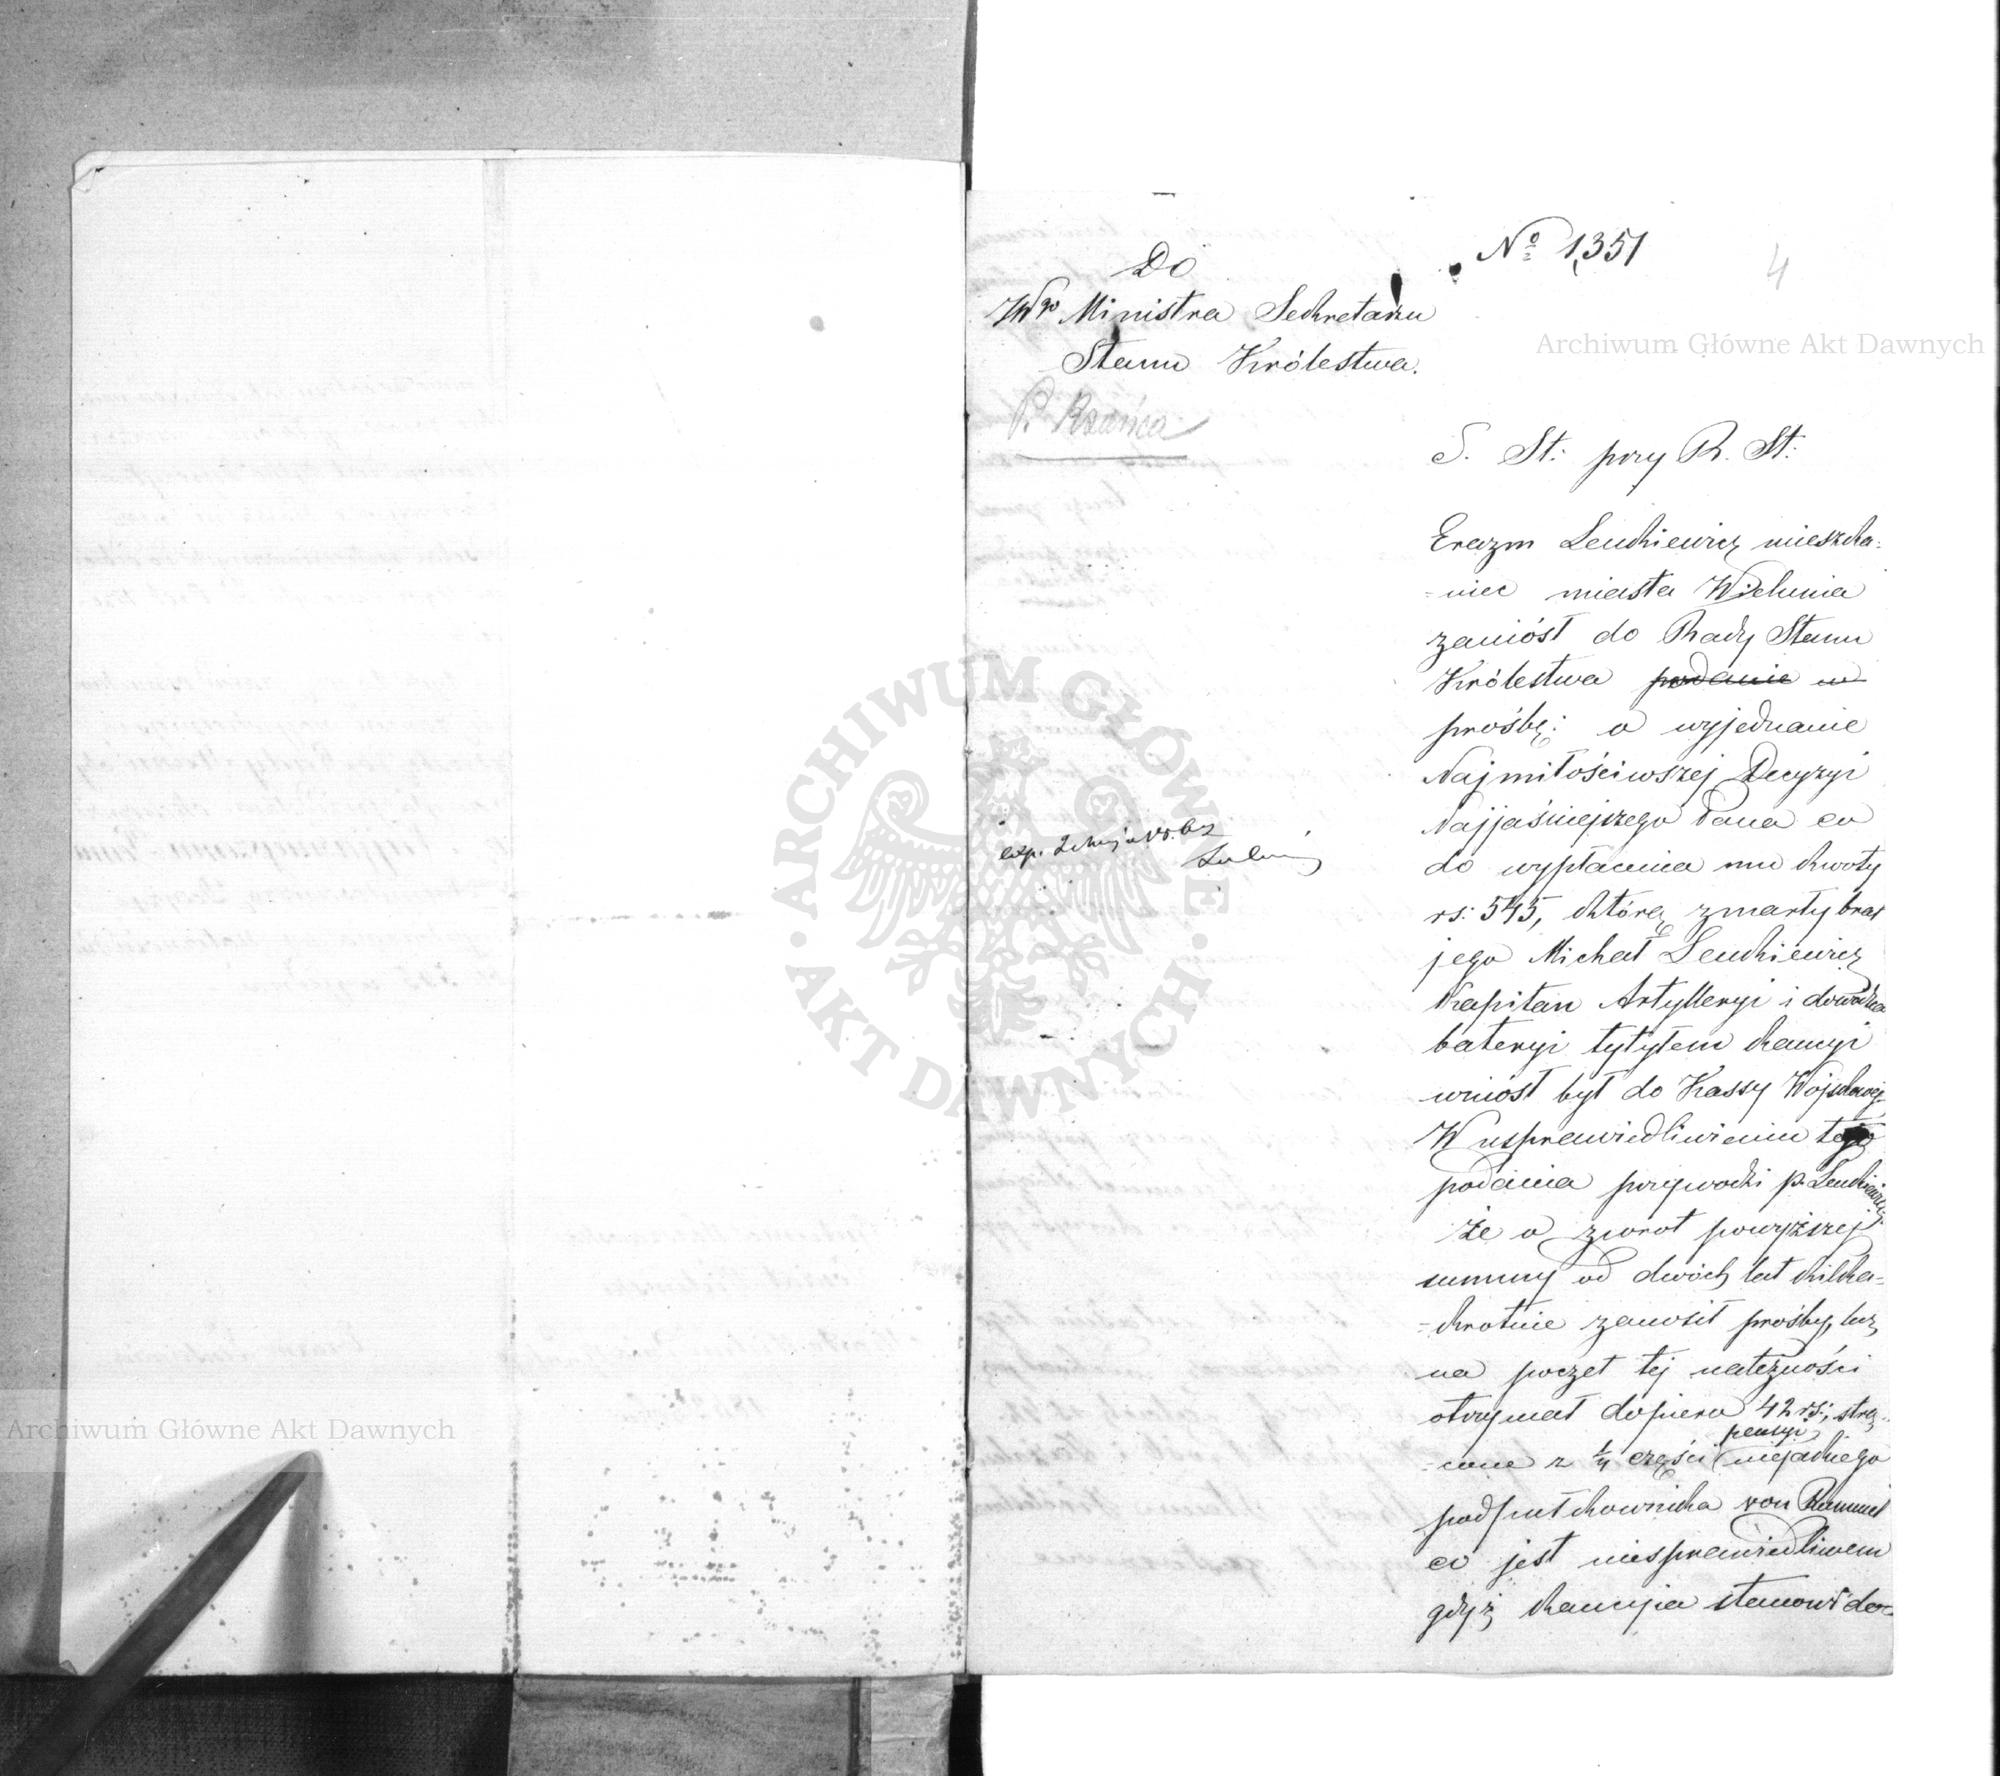 Do
JWgo Ministra Sekretarza
Stanu Królestwa.
P. Rzańca
exp. 2 Maja
Nº 1,351
4
S. St: przy R. St:
Erazm Lenkiewicz mieszcza=
=niec miasta Wielunia
zaniósł do Rady Stanu
Królestwa podanie w
prośbę: o wyjednanie
Najmiłościwszej Decyzyi
Najjaśniejszego Pana co
do wypłacenia mu kwoty
rs: 545, którą zmarły brat
jego Michał Lenkiewicz
Kapitan Artylleryi i dowódzca
bateryi tytyłem kaucyi
wniósł był do Kassy Wojskowej.
W usprawiedliwieniu tego
podania przywodzi p. Lenkiewicz
że o zwrot powyższej
summy od dwóch lat kilka=
=krotnie zanosił prośby, lecz
na poczet tej należności
otrzymał dopiero 42 rs:, strą=
=cone z 1/4 części pensyi niejakiego
podpułkownika von Rummel
co jest niesprawiedliwem
gdyż kaucyja stanowi do=
Archiwum Główne Akt Dawnych
Archiwum Główne Akt Dawnych
ARCHIWUM GŁÓWNE
AKT DAWNYCH